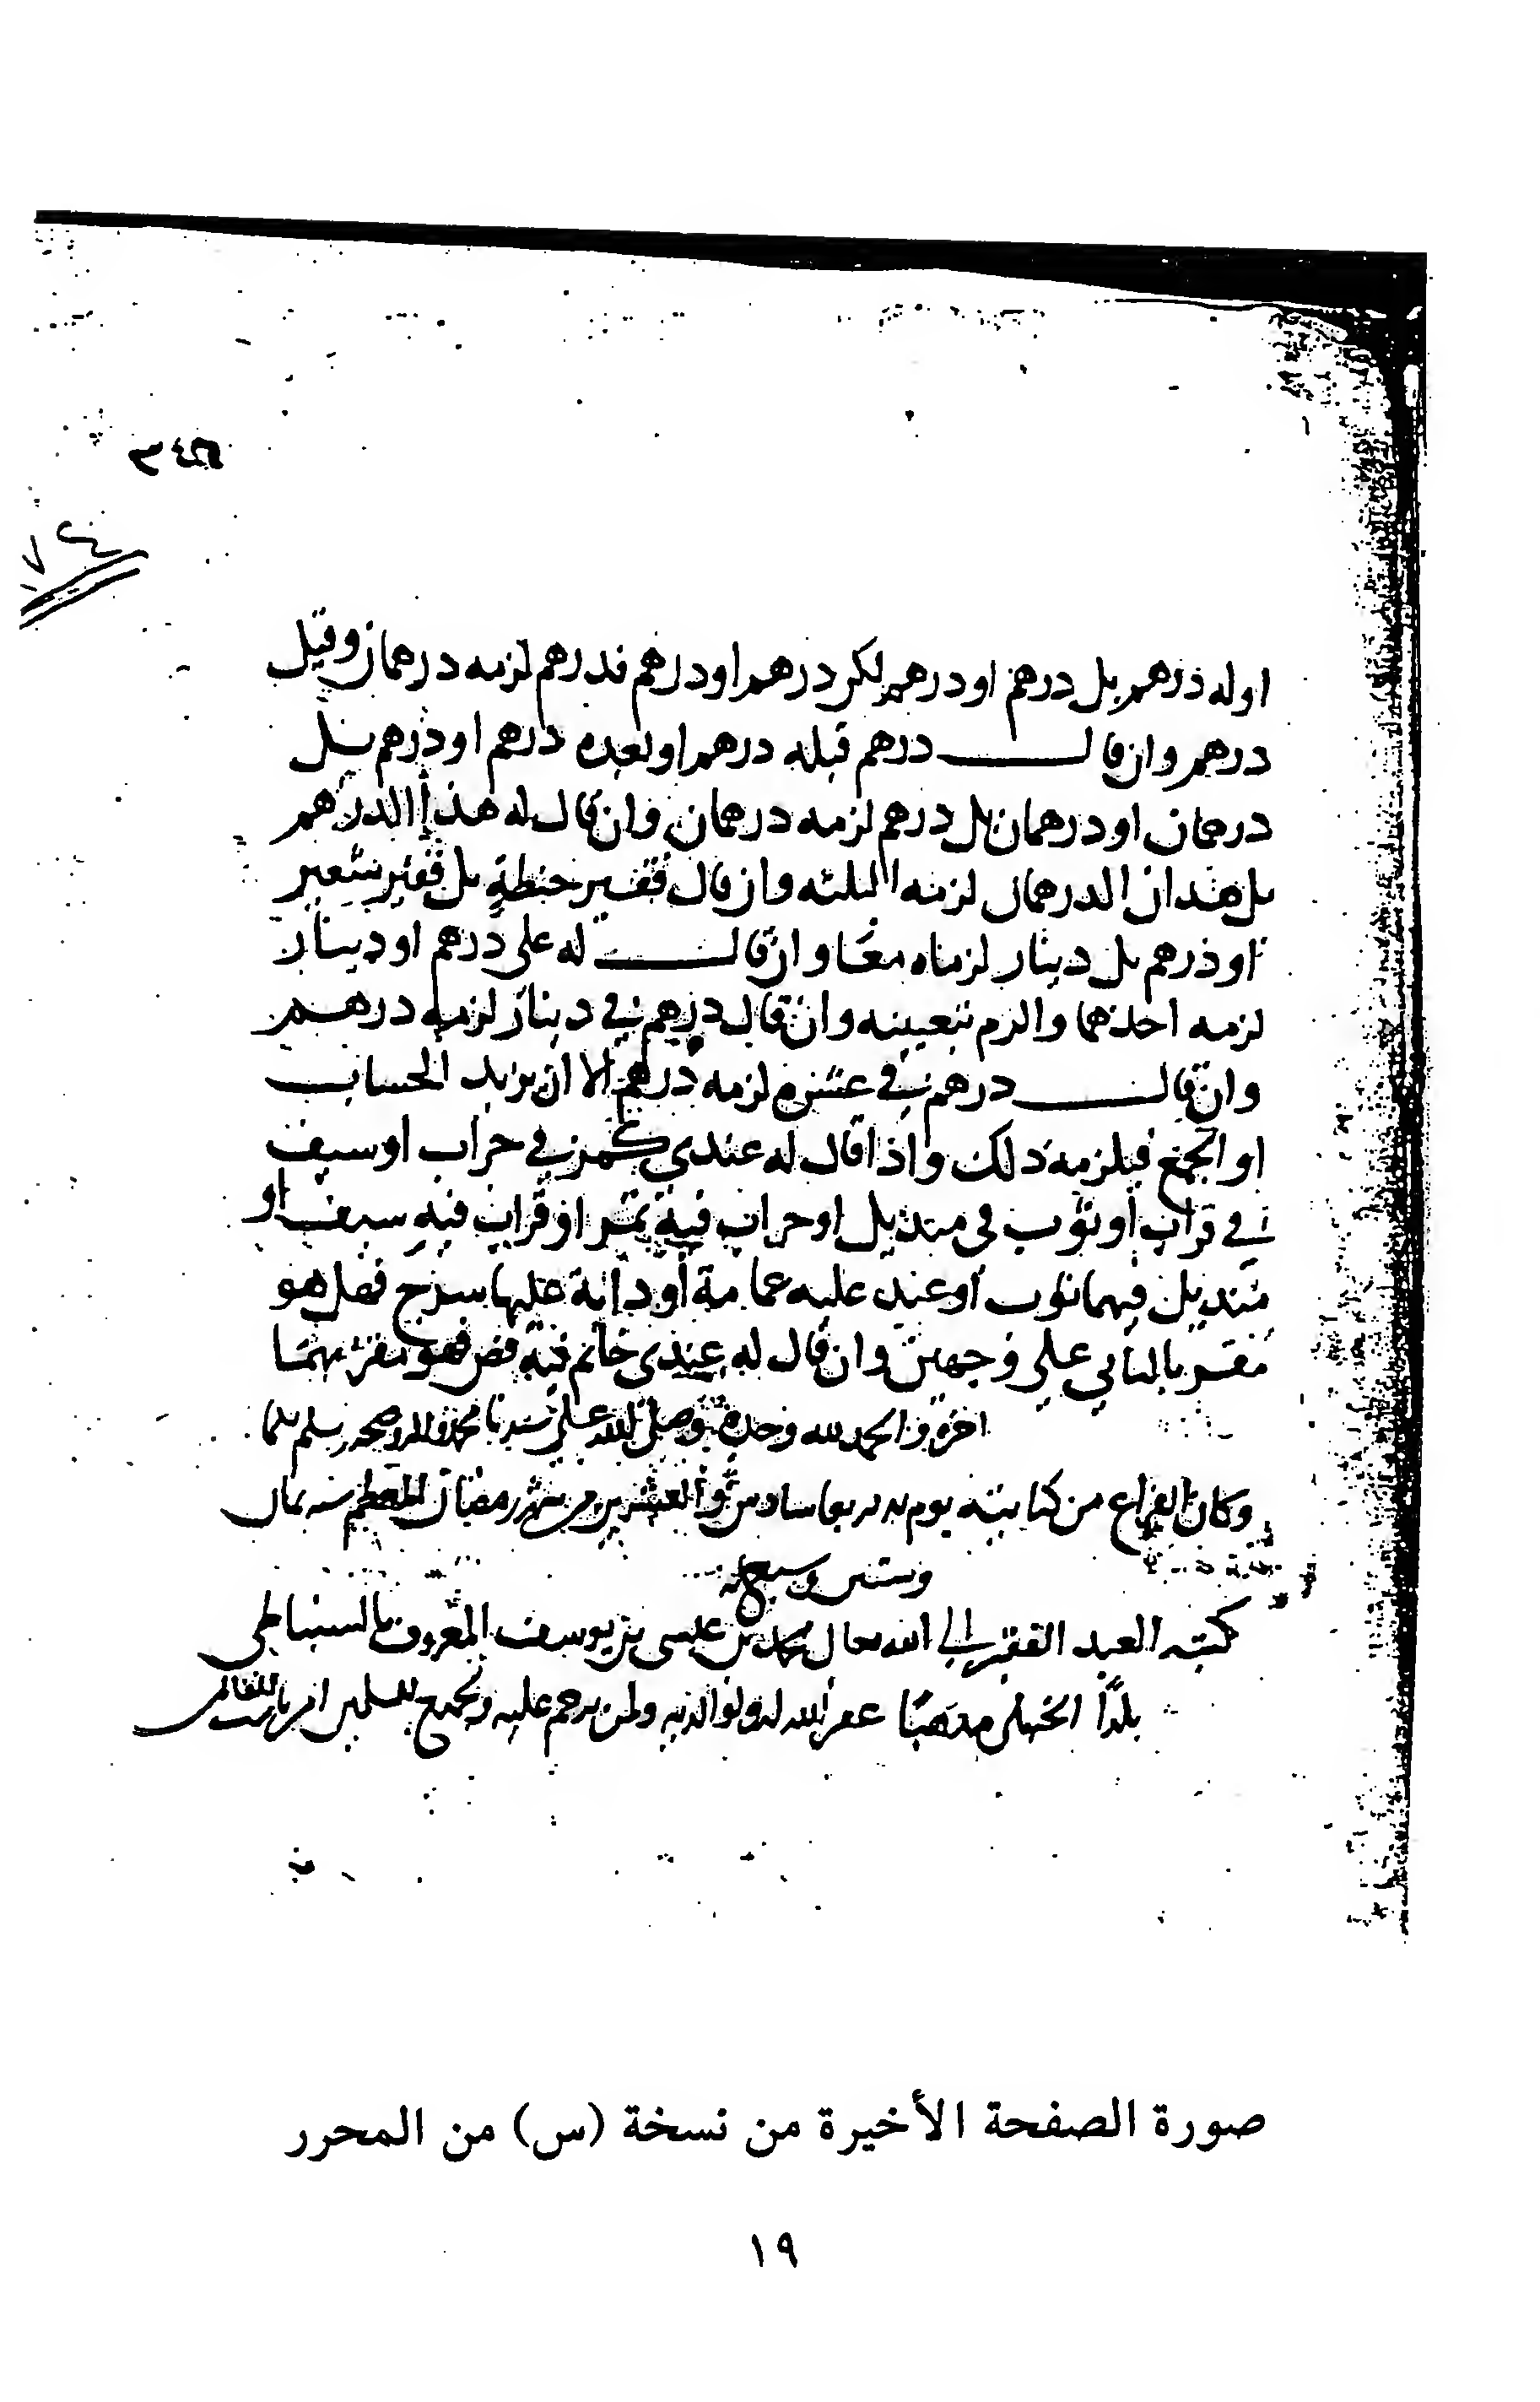 اوله درهم بل درهم او درهم لكن درهم او درهم فدرهم لزمه درهمان وقيل
درهم وان قال درهم قبله درهم او بعده درهم او درهم بل
درهمان او درهمان بل درهم لزمه درهمان وان قال له هذا الدرهم
بل هذان الدرهمان لزمه الثلثه وان قال قفيز حنطة بل قفيز شعير
او درهم بل دينار لزماه معا وان قال له علي درهم او دينار
لزمه احدهما والزم بتعيينه وان قال درهم في دينار لزمه درهم
وان قال درهم في عشره لزمه درهم الا ان يريد الحساب
او الجمع فيلزمه ذلك واذا قال له عندي تمر في جراب او سيف
في قراب او ثوب في منديل او جراب فيه تمر او قراب فيه سيف او
منديل فيها ثوب او عبد عليه عمامة او دابة عليها سرج فهل هو
مقر بالثاني على وجهين وان قال له عندي خاتم فيه فص فهو مقر بهما
اخره والحمد لله وحده وصلى الله على سيدنا محمد واله وصحبه وسلم
وكان الفراغ من كتابته يوم سادس والعشرين من شهر رمضان المعظم سنه ثمان
وستين وسبعمايه
كتبه العبد الفقير الى الله تعالى محمد بن عيسى بن يوسف المعروف بالسنباطي
بلدا الحنبلي مذهبا غفر الله له ولوالديه ولمن يرحم عليه ولجميع المسلمين امين
صورة الصفحة الأخيرة من نسخة (س) من المحرر
١٩